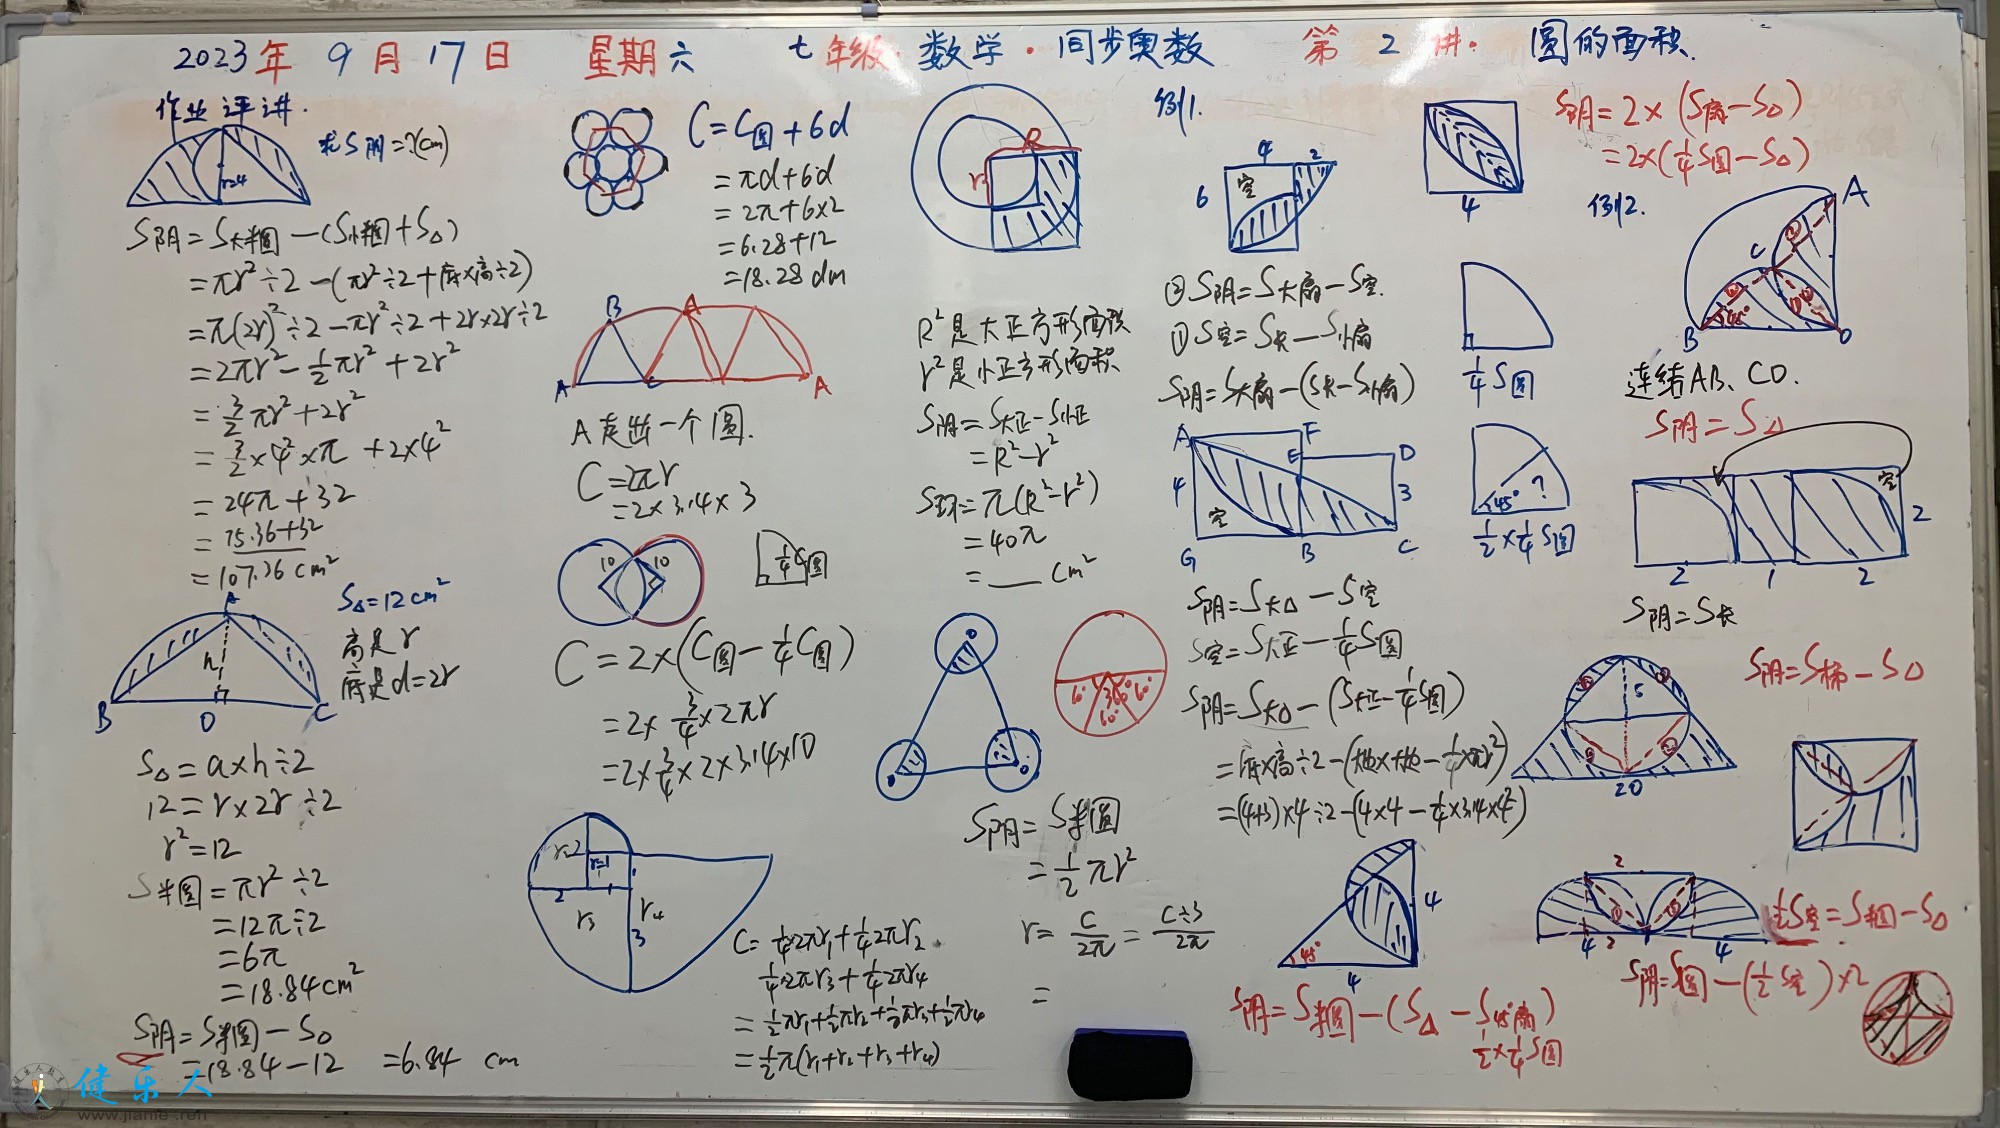 2023年 9月17日 星期六 七年级·数学·同步奥数 第2讲·圆的面积
作业评讲.
求S阴=?(cm)
r=4
S阴=S大半圆-(S小半圆+S△)
=πr²÷2-(πr²÷2+底×高÷2)
=π(2r)²÷2-πr²÷2+2r×2r÷2
=2πr²-1/2πr²+2r²
=3/2πr²+2r²
=3/2×4²×π+2×4²
=24π+32
=75.36+32
=107.36cm²
A
h
B O C
S△=12cm²
高是r
底是d=2r
S△=a×h÷2
12=r×2r÷2
r²=12
S半圆=πr²÷2
=12π÷2
=6π
=18.84cm²
S阴=S半圆-S△
=18.84-12 =6.84 cm
C=C圆+6d
=πd+6d
=2π+6×2
=6.28+12
=18.28dm
B A
A C A
A走出一个圆.
C=2πr
=2×3.14×3
10 10
1/4C圆
C=2×(C圆-1/4C圆)
=2×3/4×2πr
=2×3/4×2×3.14×10
r=2 r=1
2 1
r3 r4
3
C=1/4·2πr1+1/4·2πr2
1/4·2πr3+1/4·2πr4
=1/2πr1+1/2πr2+1/2πr3+1/2πr4
=1/2π(r1+r2+r3+r4)
R
r
R²是大正方形面积
r²是小正方形面积
S阴=S大正-S小正
=R²-r²
S环=π(R²-r²)
=40π
=___cm²
60° 60° 60°
S阴=S半圆
=1/2πr²
r=C/2π=C÷3/2π
=
例1.
4 2
6 空
②S阴=S大扇-S空.
①S空=S长-S小扇
S阴=S大扇-(S长-S小扇)
A F
E D
4 3
空
G B C
S阴=S大△-S空
S空=S大正-1/4S圆
S阴=S大△-(S大正-1/4S圆)
=底×高÷2-(边×边-1/4×πr²)
=(4+3)×4÷2-(4×4-1/4×3.14×4²)
45° 4
4
S阴=S半圆-(S△-S45°扇)
1/2×1/4S圆
4
S阴=2×(S扇-S△)
=2×(1/4S圆-S△)
1/4S圆
45° ?
1/2×1/4S圆
例2.
A
C
B 45° O
连结AB、CO.
S阴=S△
空
2
2 1 2
S阴=S长
5
20
S阴=S梯-S△
2
4 2 4
1/2S空=S半圆-S△
S阴=S圆-(1/2S空)×2
健乐人
www.jianle.ren